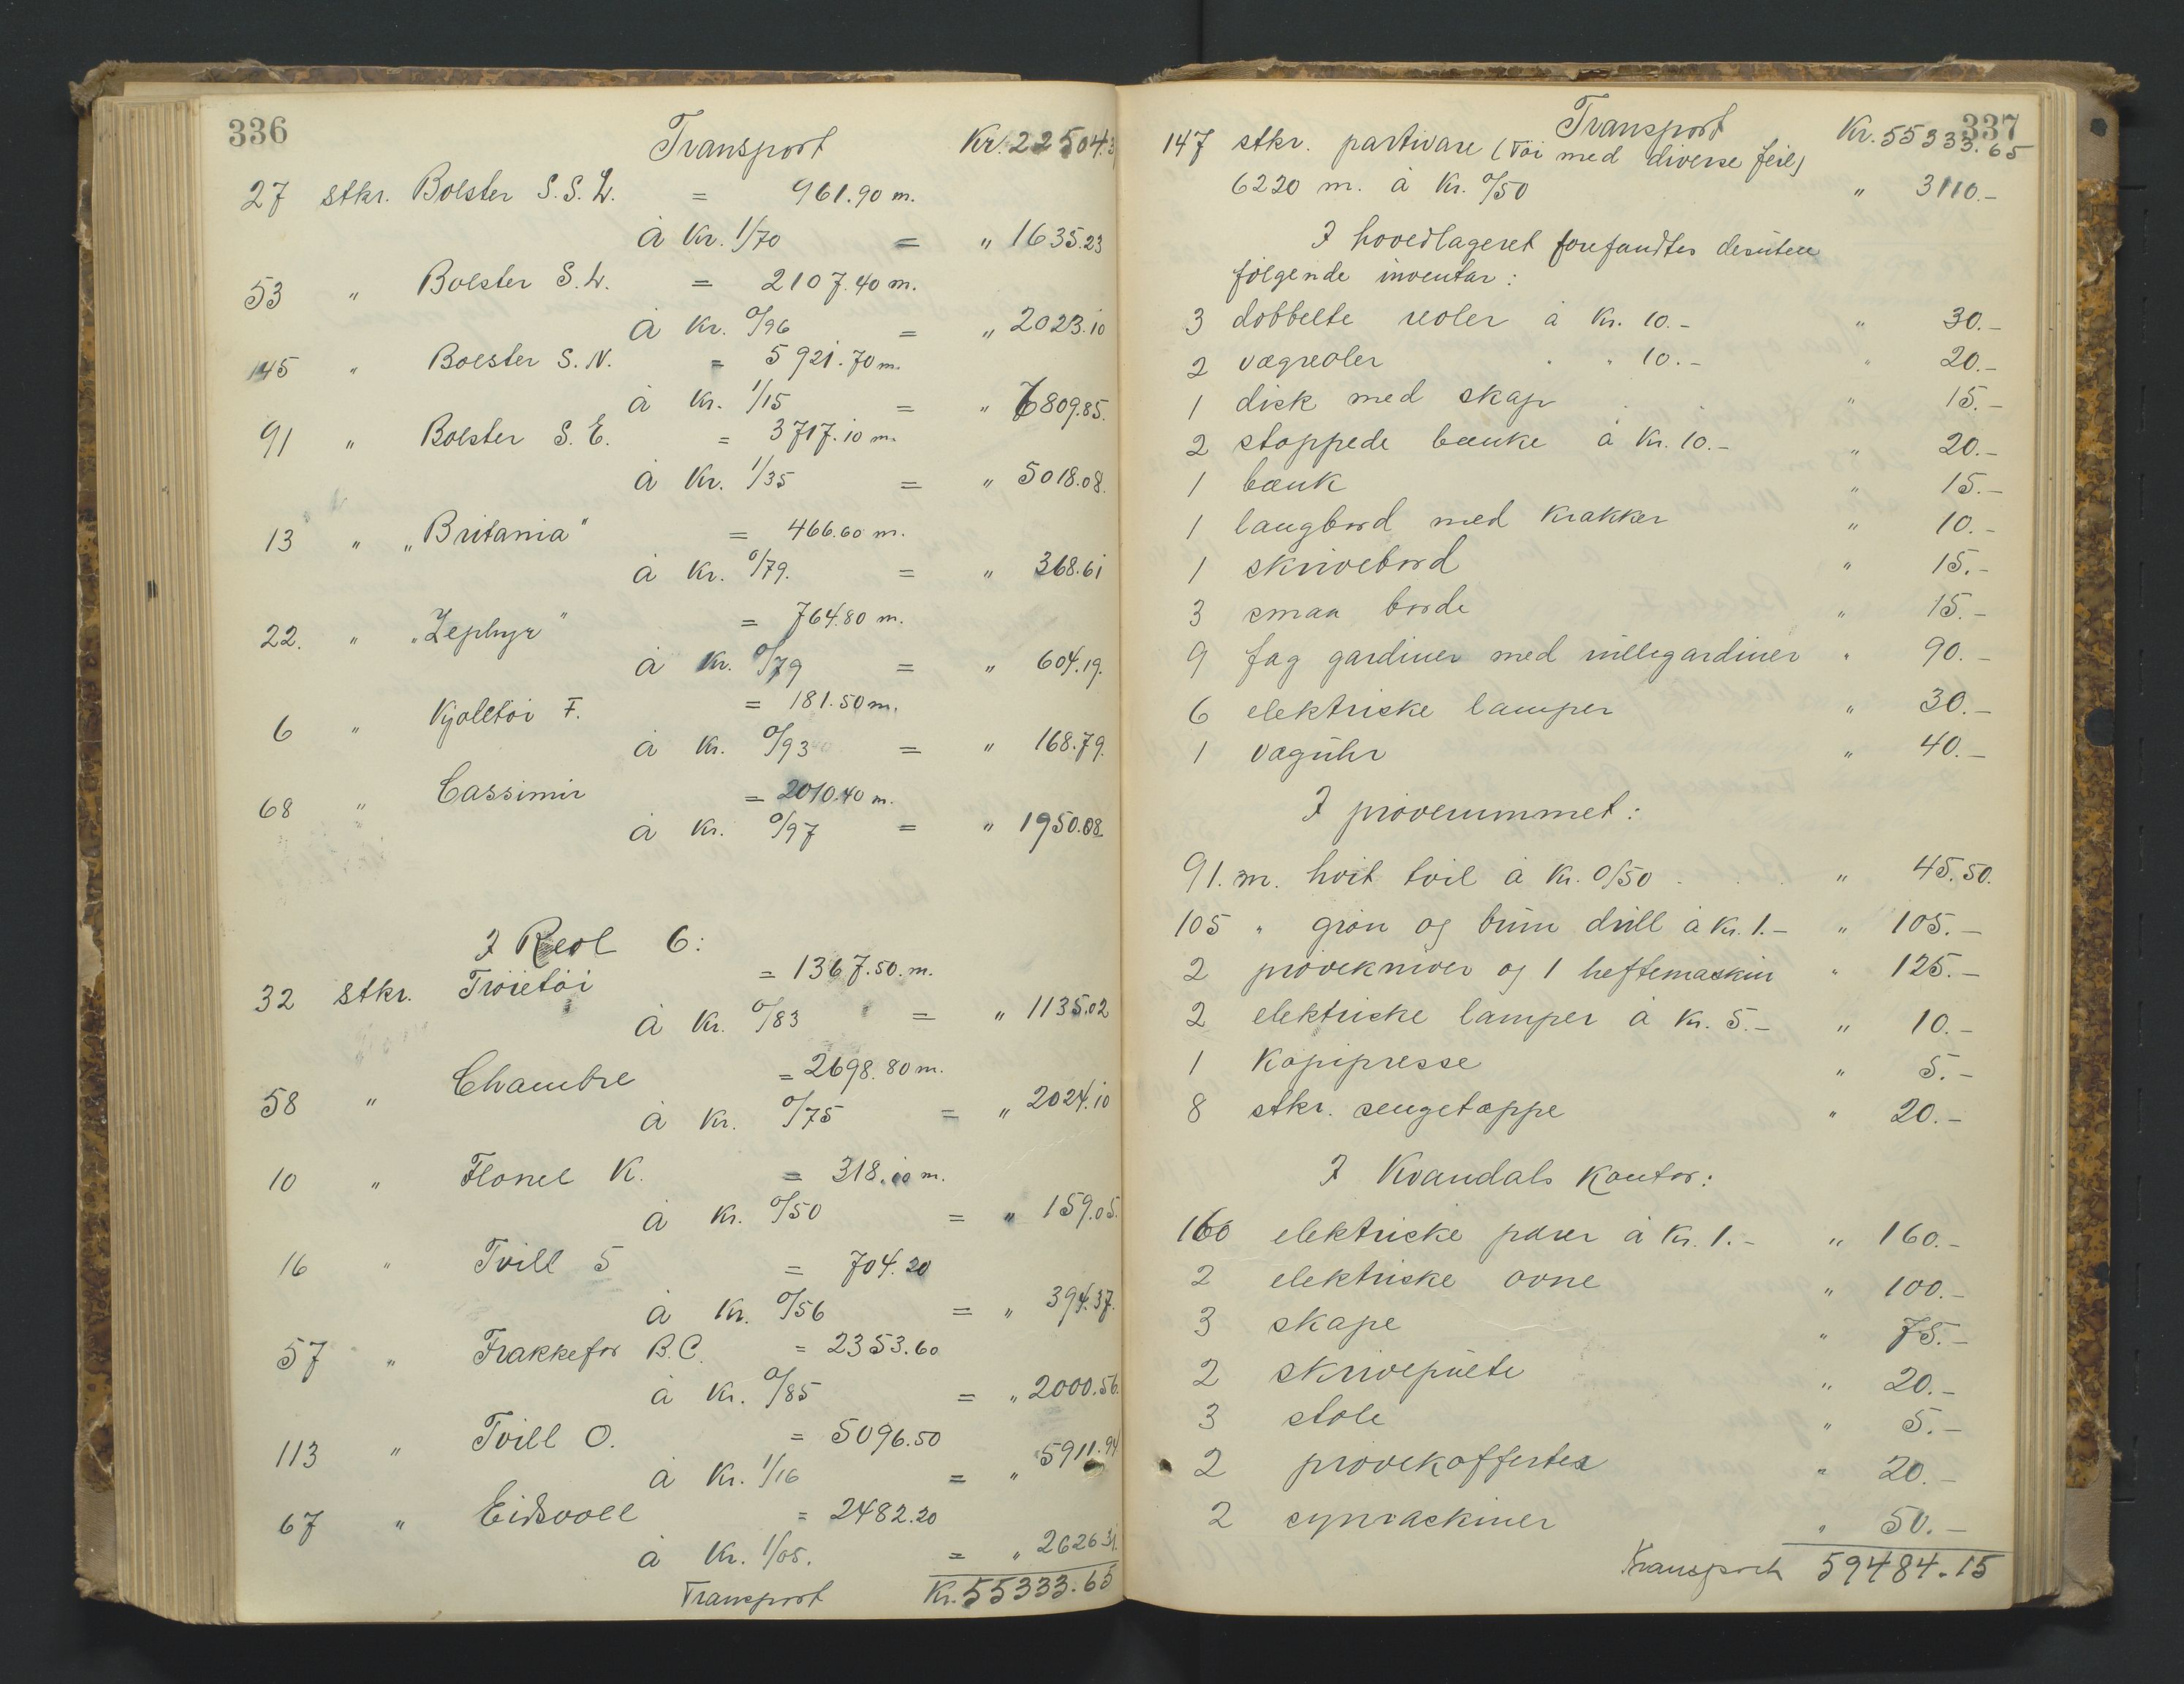 336
Transport Kr. 22504.3
27 stkr. Bolster S.S.L. = 961.90 m.
à Kr. 1/70 = " 1635.23
53 " Bolster S.L. = 2107.40 m.
à Kr. 0/96 = " 2023.10
145 " Bolster S.N. = 5921.70 m.
à Kr. 1/15 = " 6809.85.
91 " Bolster S.E. = 3717.10 m.
à Kr. 1/35 = " 5018.08.
13 " „Britania" = 466.60 m.
à Kr. 0/79. = " 368.61
22. " „Zephyr" = 764.80 m.
à Kr. 0/79 = " 604.19.
6 " Kjoletöi F. = 181.50 m.
à Kr. 0/93 = " 168.79.
68 " Cassimir = 2010.40 m.
à Kr. 0/97 = " 1950.08.
I Reol 6:
32 stkr. Tröietöi = 1367.50. m.
à Kr. 0/83 = " 1135.02
58 " Chambre = 2698.80 m.
à Kr. 0/75 = " 2024.10
10 " Flonel K. = 318.10 m.
à Kr. 0/50 = " 159.05.
16 " Tvill S = 704.20
à Kr. 0/56 = " 394.37.
57 " Frakkefor B.C. = 2353.60
à Kr. 0/85 = " 2000.56.
113 " Tvill O. = 5096.50
à Kr. 1/16 = " 5911.94
67 " Eidsvoll = 2482.20
à Kr. 1/05. = " 2626.31.
Transport Kr. 55333.65
337
Transport Kr. 55333.65
147 stkr. partivare (töi med diverse feil)
6220 m. à Kr. 0/50 " 3110.-
I hovedlageret forefandtes desuten
følgende inventar:
3 dobbelte reoler à Kr. 10.- " 30.-
2 vægreoler " " 10.- " 20.-
1 disk med skap " 15.-
2 stoppede bænke à Kr. 10.- " 20.-
1 bænk " 15.-
1 langbord med krakker " 10.-
1 skrivebord " 15.-
3 smaa borde " 15.-
9 fag gardiner med rullegardiner " 90.-
6 elektriske lamper " 30.-
1 væguhr " 40.-
I prøverummet:
91. m. hvit tvil à Kr. 0/50 " 45.50.
105 " grøn og brun drill à Kr. 1.- " 105.-
2 prøvekniver og 1 heftemaskin " 125.-
2 elektriske lamper à Kr. 5.- " 10.-
1 Kopipresse " 5.-
8 stkr. sengetæppe " 20.-
I Kvandals Kontor:
160 elektriske pærer à Kr. 1.- " 160.-
2 elektriske ovne " 100.-
3 skape " 75.-
2 skrivepulte " 20.-
3 stole " 5.-
2 prøvekofferter " 20.-
2 symaskiner " 50.-
Transport 59484.15